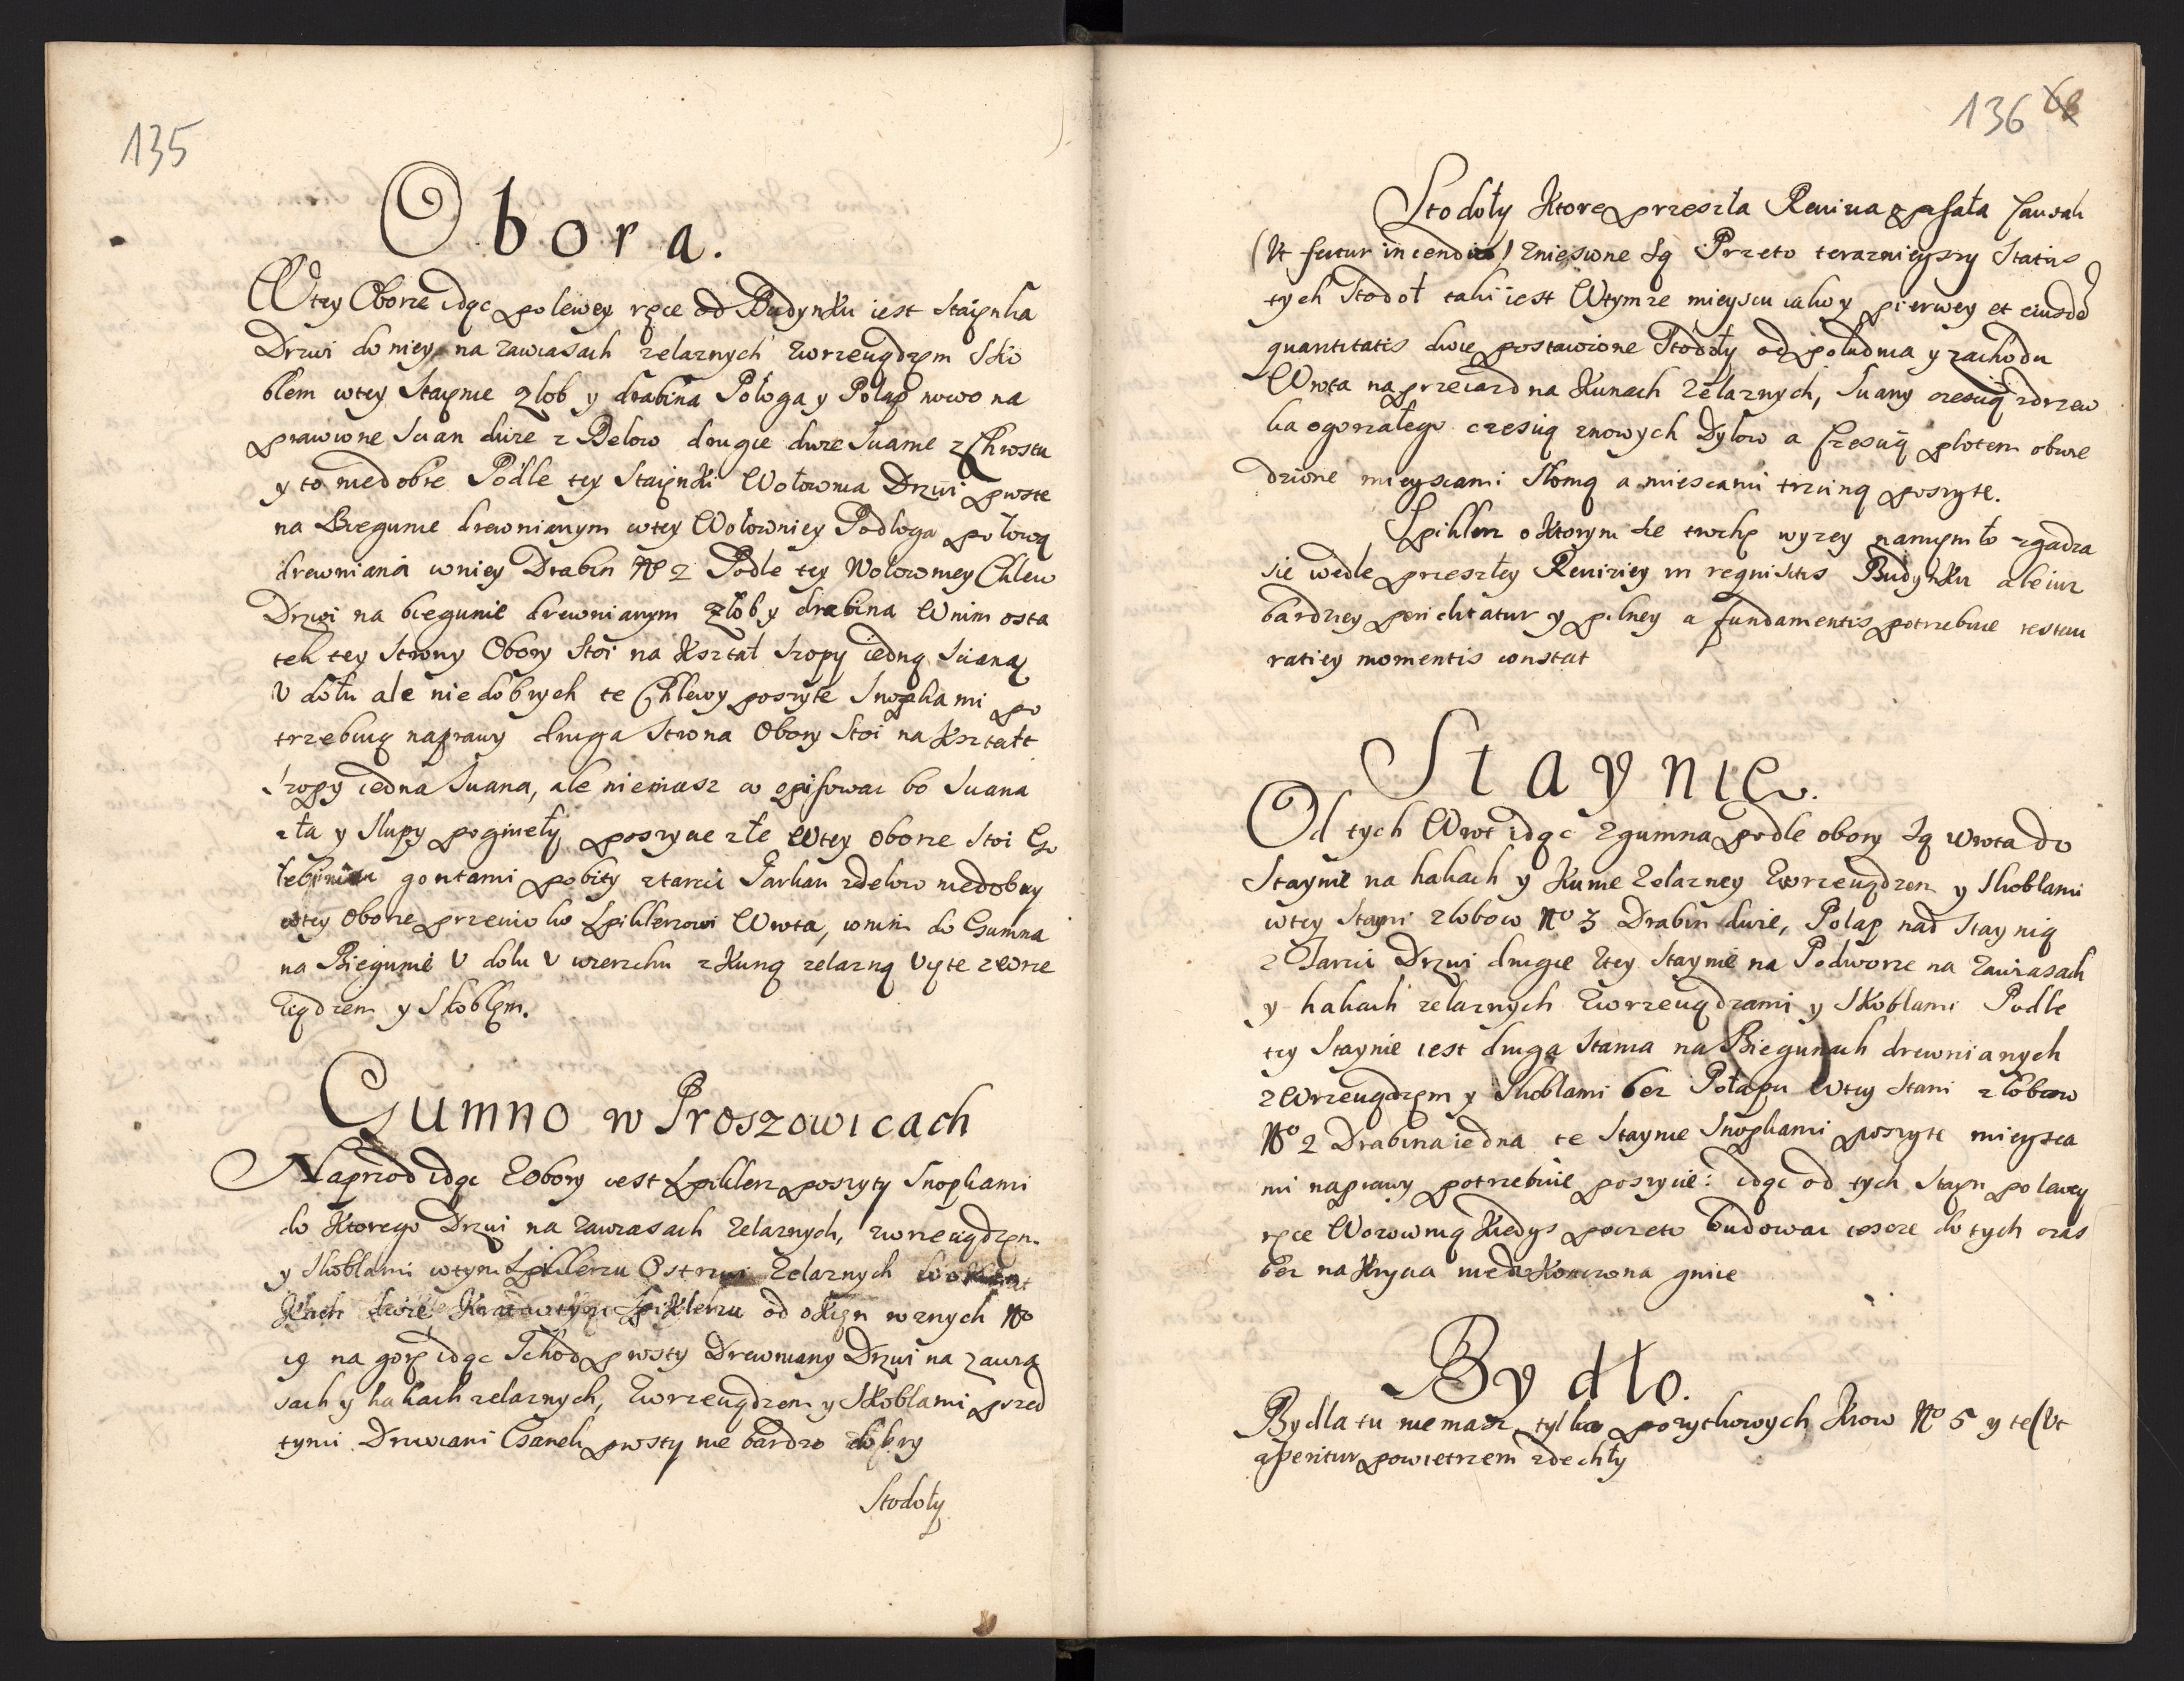 135
Obora.
Wtey Oborze idąc po lewey ręce od Budynku iest Staienka
Drzwi do niey na zawiasach zelaznych zwrzeuądzem Sko
blem wtey Staynie zlob y drabina Pologa y Polap nowo na
prawione Scian dwie z Below drugie dwie Scianie z Chrostu
y to niedobre Podle tey Staienki Wołownia Drzwi proste
na Biegunie drewnianym wtey Wołowniey Podloga połową
drewniana wniey Drabin No 2 Podle tey Wolowniey Chlew
Drzwi na biegunie drewnianym złob y drabina Wnim osta
tek tey Strony Obory Stoi na Kształ Szopy iedną Scianą
V dołu ale niedobrych te Chlewy poszyte Snopkami po
trzebuią naprawy druga Strona Obory Stoi na Kształt
Szopy iedna Sciana, ale niemasz co opisowac bo Sciana
zła y Slupy pogineły poszycie złe Wtey Oborze Stoi Go
gontami pobity ztarcic Parkan zdelow niedobry
wtey Oborze przeciwko Spiklerzowi Wrota, wnim do Gumna
na Biegunie V dolu V wierzchu z Kuną zelazną Vyte zWrze
ciądzem y Skoblem.
Gumno w Proszowicach
Naprzod idąc zObory iest Spiklerz poszyty Snopkami
do Ktorego Drzwi na zawiasach zelaznych, zwrzeciądzem
y Skoblami wtym Spiklerzu Ostrzwi zelaznych
dwie Spiklerzu od okien roznych No
19 na gorę idąc Schod prosty Drewniany Drzwi na zawia
sach y hakach zelaznych, zwrzeuądzem y Skoblami przed
tymi Drzwiami Ganek prosty nie bardzo dobry
Stodoły
136 68
Stodoły Ktore przeszła Rewizia opisała causali
(Vt fertur incendio) zniesione Są Przeto teraznieyszy Status
tych Stodoł taki iest Wtymze mieyscu iako y pierwey et eiusdē
quantitatis dwie postawione Stodoły od południa y zachodu
Wrota na przeiazd na Kunach zelaznych, Sciany częscią zdrzew
ka ogorzałego częscią znowych Dylow a Częscią płotem obwie
dzione mieyscami Słomą a miescami trzciną poszyte.
Spiklerz o Ktorym sie trochę wyzey namięniło zgadza
sie wedle przeszłey Rewiziey in regnistris Budynku ale iuz
bardziey periclitatur y pilney a fundamentis potrzebuie restau
ratiey momentis constat
Staynie.
Od tych Wrot idąc zgumna podle obory Są wrota do
Staynie na hakach y Kunie zelazney zwrzeuądzem y Skoblami
wtey Stayni zlobow No 3 Drabin dwie, Polap nad Staynią
z Tarcic Drzwi drugie ztey Staynie na Podworze na zawiasach
y hakach zelaznych zwrzeuądzami y Skoblami Podle
tey Staynie iest druga Stania na Biegunach drewnianych
zWrzeuądzem y Skoblami bez Połapu Wtey Stani złobow
No 2 Drabina iedna te Staynie Snopkami poszyte mieysca
mi naprawy potrzebuie poszycie: idąc od tych Stayn po lewey
ręce Wozownią Kiedys poczeto budowac iescze do tych czas
bez nakrycia niedokonczona gniie
Bydło.
Bydla tu niemasz tylko pozytkowych Krow No 5 y te (Vt
asseritur powietrzem zdechły